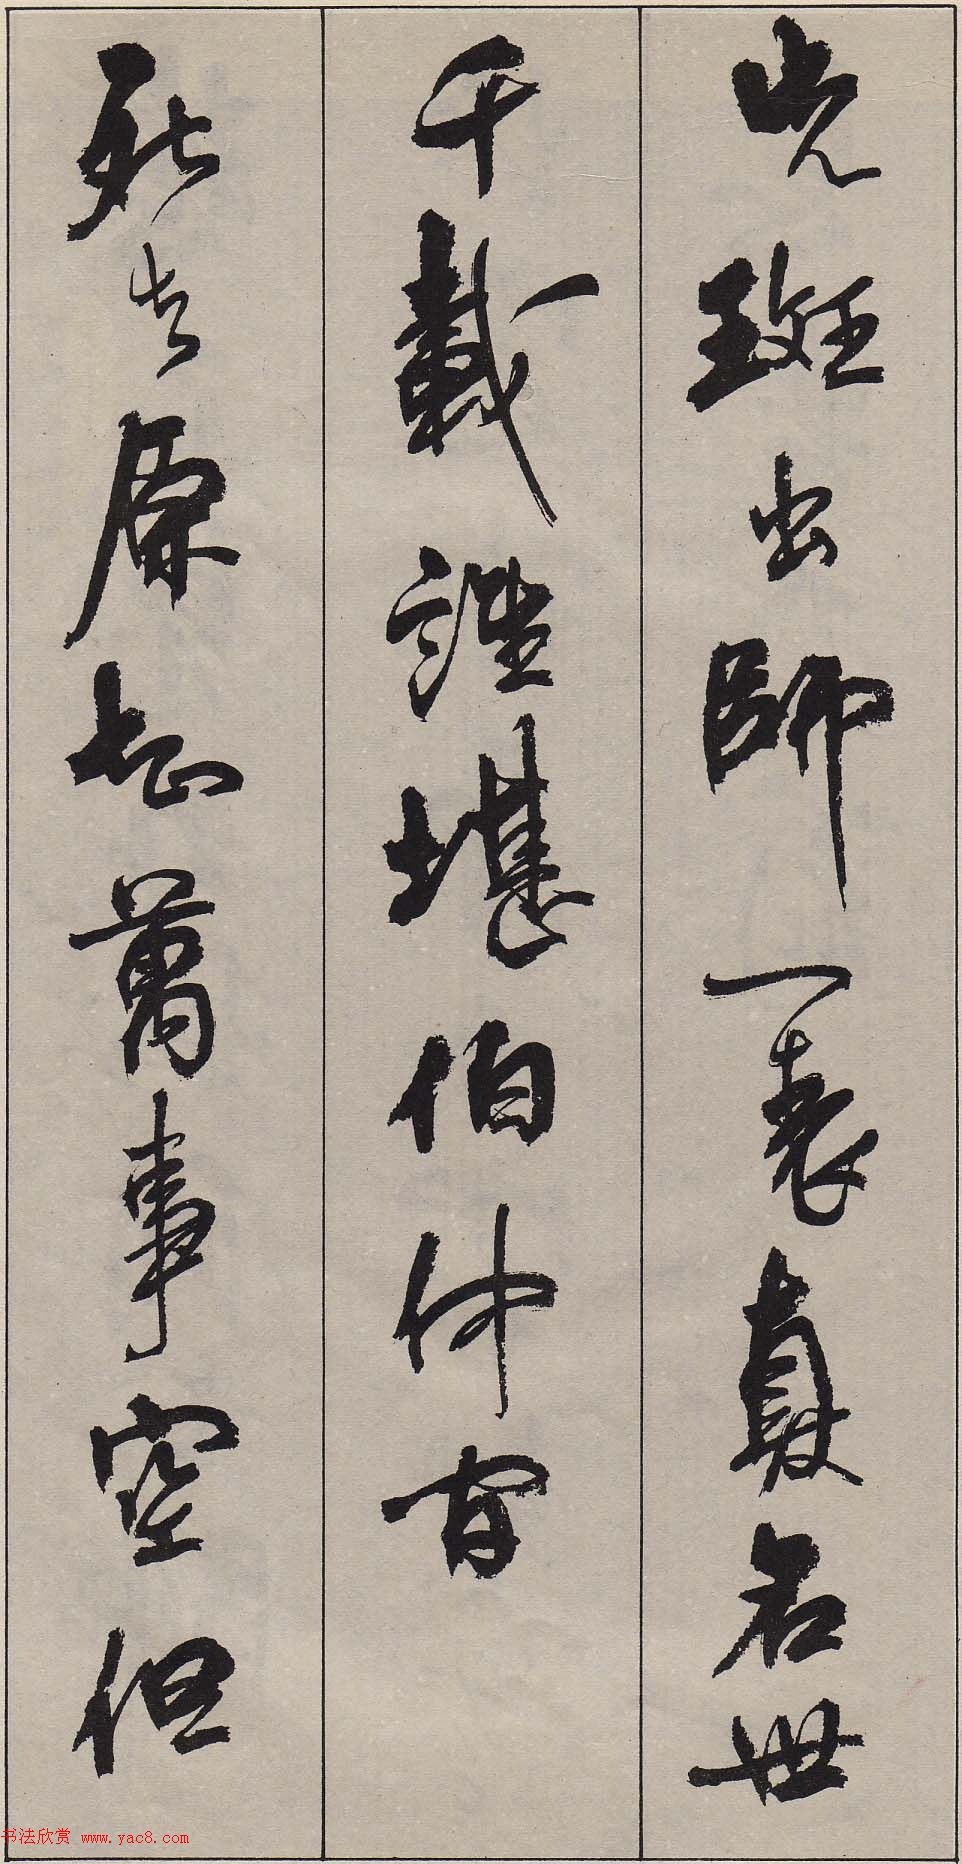 先斑出師一表真名世
千載誰堪伯仲間
死去原知萬事空但
书法欣赏 www.yac8.com